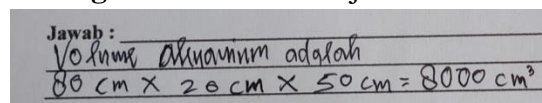 Jawab :
Volume akuavium adalah
80 cm X 20 cm X 50 cm = 8000 cm³